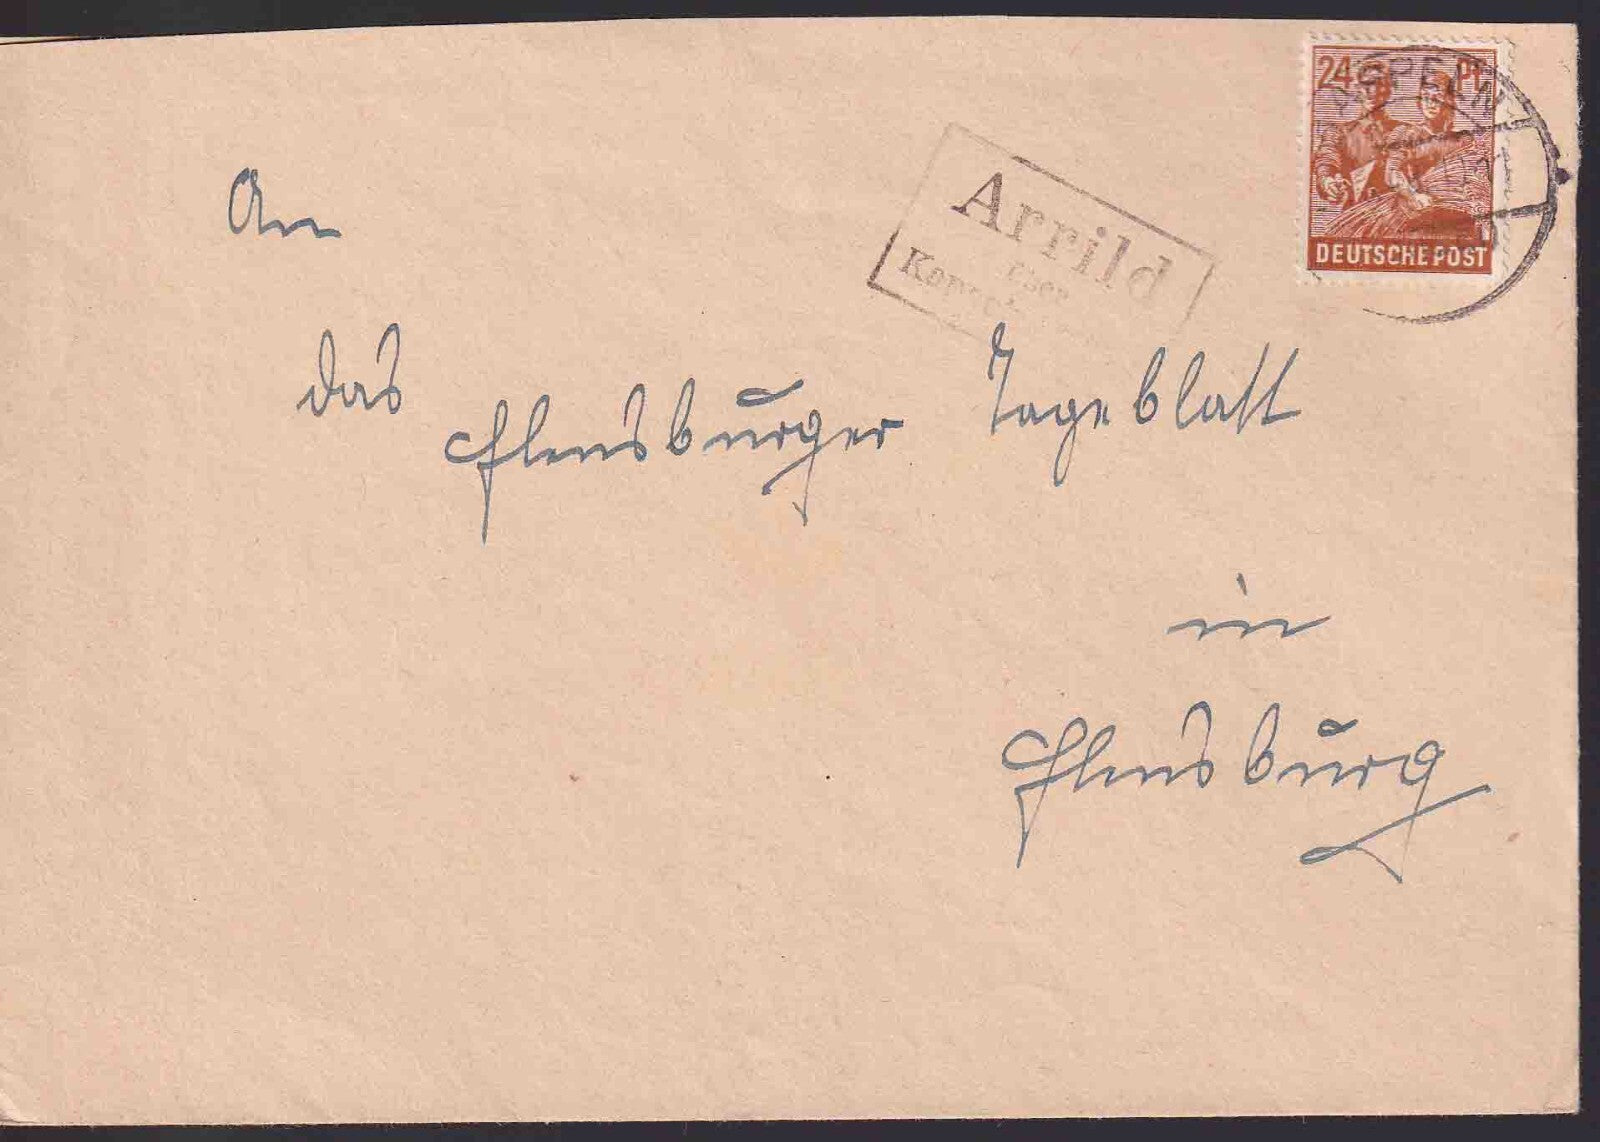 24 Pf
DEUTSCHE POST
Arrild
über
An
das Flensburger Tageblatt
in
Flensburg